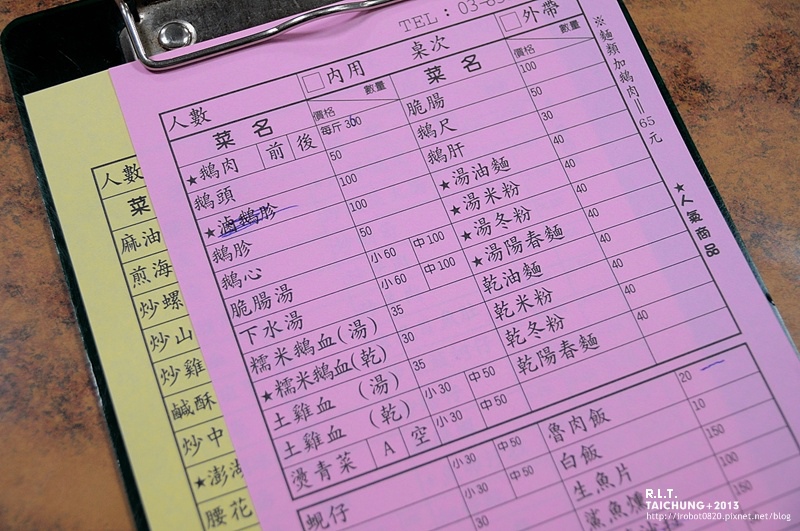 TEL：03-83
人數
內用
桌次
外帶
菜名
價格
數量
菜名
價格
數量
★鵝肉 前 後 每斤 300
鵝頭 50
★滷鵝胗 100
鵝胗 100
鵝心 50
脆腸湯 小60 中100
下水湯 小60 中100
糯米鵝血(湯) 35
★糯米鵝血(乾) 30
土雞血 (湯) 35
土雞血 (乾) 小30 中50
燙青菜 A 空 小30 中50
脆腸 100
鵝尺 50
鵝肝 30
★湯油麵 40
★湯米粉 40
★湯冬粉 40
★湯陽春麵 40
乾油麵 40
乾米粉 40
乾冬粉 40
乾陽春麵 40
※麵類加鵝肉＝65元
★人氣商品
蜆仔 小30 中50
小30 中50
30
魯肉飯 20
白飯 10
生魚片 150
鯊魚燻 100
150
人數
菜
麻油
煎海
炒螺
炒山
炒雞
鹹酥
炒中
★澎湖
腰花
R.I.T.
TAICHUNG+2013
http://irobot0820.pixnet.net/blog